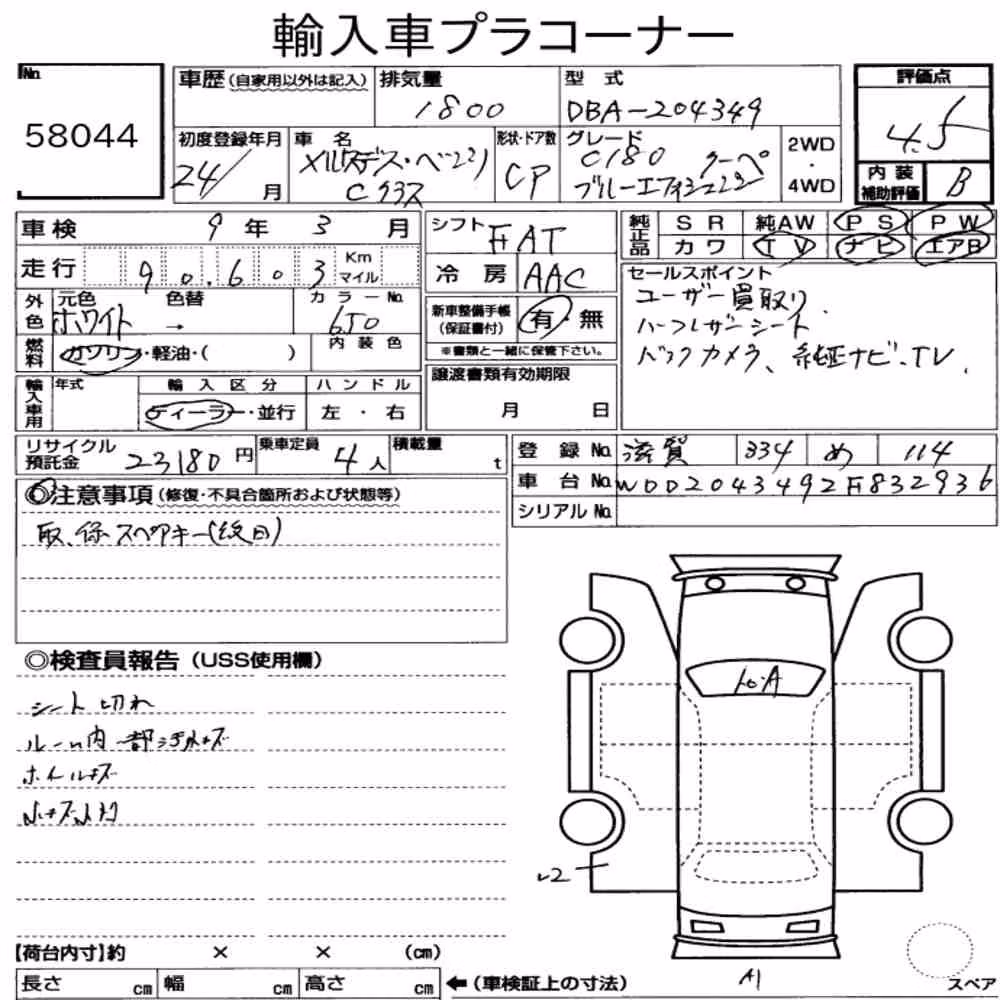 輸入車プラコーナー
No.
58044
車歴(自家用以外は記入) 排気量 型式
1800 DBA-204349
評価点
4.5
初度登録年月 車名 形状・ドア数 グレード
24/ 月 メルセデス・ベンツ Cクラス CP C180 クーペ
ブルーエフィシェンシー
2WD
・
4WD
内装
補助評価 B
車検 9年 3月
走行 90,603 Km
マイル
外色 元色 色替 カラーNo.
ホワイト → 650
燃料 ガソリン・軽油・( ) 内装色
輸入車用 年式 輸入区分 ハンドル
ディーラー・並行 左・右
シフト FAT
冷房 AAC
新車整備手帳
(保証書付) 有・無
※書類と一緒に保管下さい。
譲渡書類有効期限
月 日
純正品 SR 純AW PS PW
カワ TV ナビ エアB
セールスポイント
ユーザー買取り
ハーフレザーシート
バックカメラ、純正ナビ、TV、
リサイクル
預託金 23180円 乗車定員 4人 積載量 t
登録No. 滋賀 334 め 114
車台No. WDD2043492F832936
シリアルNo.
◎注意事項(修復・不具合箇所および状態等)
取、保、スペアキー(後日)
◎検査員報告(USS使用欄)
シート切れ
ルーム内一部汚れキズ
ホイールキズ
小キズ小凹
ヒ.A
A1
スペア
【荷台内寸】約 × × (cm)
長さ cm 幅 cm 高さ cm ←(車検証上の寸法)